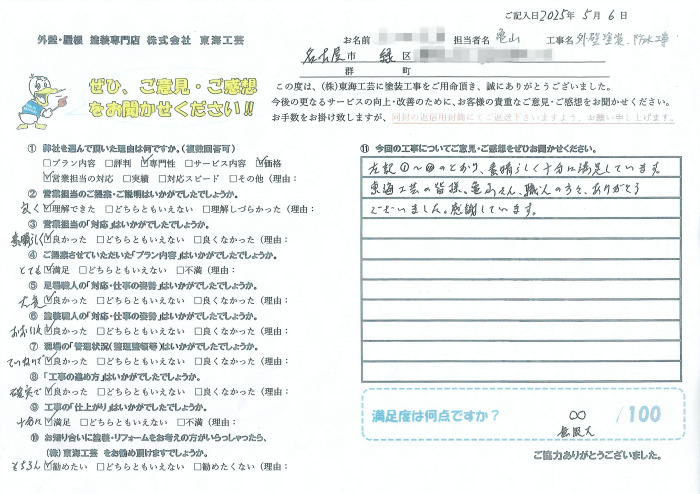 ご記入日 2025年 5月 6日
外壁・屋根 塗装専門店 株式会社 東海工芸
お名前 担当者名 亀山 工事名 外壁塗装、防水工事
名古屋市 緑区
郡 町
ぜひ、ご意見・ご感想
をお聞かせください!!
この度は、(株)東海工芸に塗装工事をご用命頂き、誠にありがとうございました。
今後の更なるサービスの向上・改善のために、お客様の貴重なご意見・ご感想をお聞かせください。
お手数をお掛け致しますが、同封の返信用封筒にてご返送下さいますよう、お願い申し上げます。
① 弊社を選んで頂いた理由は何ですか。(複数回答可)
□プラン内容 □評判 ☑専門性 □サービス内容 ☑価格
☑営業担当の対応 □実績 □対応スピード □その他(理由:
② 営業担当のご提案・ご説明はいかがでしたでしょうか。
良く☑理解できた □どちらともいえない □理解しづらかった(理由:
③ 営業担当の「対応」はいかがでしたでしょうか。
素晴らしく☑良かった □どちらともいえない □良くなかった(理由:
④ ご提案させていただいた「プラン内容」はいかがでしたでしょうか。
とても☑満足 □どちらともいえない □不満(理由:
⑤ 足場職人の「対応・仕事の姿勢」はいかがでしたでしょうか。
大変☑良かった □どちらともいえない □良くなかった(理由:
⑥ 塗装職人の「対応・仕事の姿勢」はいかがでしたでしょうか。
☑良かった □どちらともいえない □良くなかった(理由:
⑦ 現場の「管理状況(整理整頓等)」はいかがでしたでしょうか。
ていねいで☑良かった □どちらともいえない □良くなかった(理由:
⑧ 「工事の進め方」はいかがでしたでしょうか。
確実で☑良かった □どちらともいえない □良くなかった(理由:
⑨ 工事の「仕上がり」はいかがでしたでしょうか。
十分に☑満足 □どちらともいえない □不満(理由:
⑩ お知り合いに塗装・リフォームをお考えの方がいらっしゃったら、
(株)東海工芸 をお勧め頂けますでしょうか。
もちろん☑勧めたい □どちらともいえない □勧めたくない(理由:
⑪ 今回の工事についてご意見・ご感想をぜひお聞かせください。
左記①〜⑩のとおり、素晴らしく十分に満足しています
東海工芸の皆様、亀山さん、職人の方々、ありがとう
ございました。感謝しています。
満足度は何点ですか? ∞ /100
無限大
ご協力ありがとうございました。